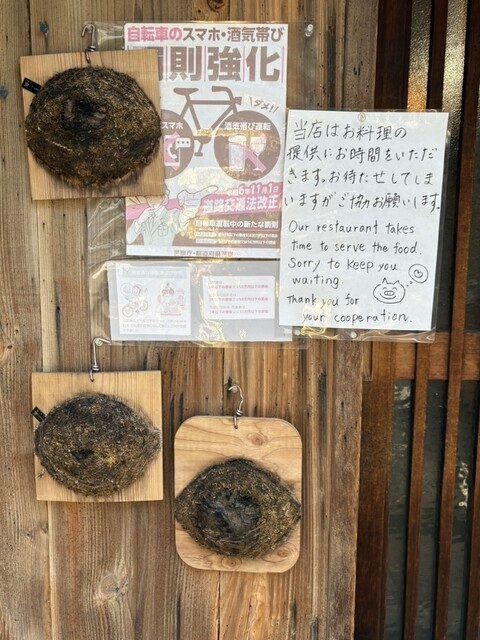 自転車のスマホ・酒気帯び
則強化
ダメ!!
スマホ
酒気帯び運転
6年11月1日
道路交通法改正
自転車運転中の新たな罰則
当店はお料理の
提供にお時間をいただ
きます。お待たせしてしま
いますがご協力お願いします。
Our restaurant takes
time to serve the food.
Sorry to keep you
waiting
Thank you for
your cooperation.